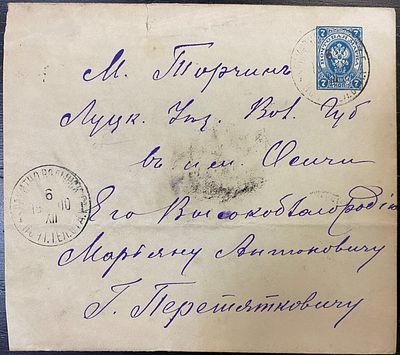 7 7
м. Торчинъ
Луцк. Уѣз. Вол. Губ
въ им. Осичи
Его Высокоблагородію
Марьяну Антоновичу
Г. Перетятковичу
6
XII
7 7